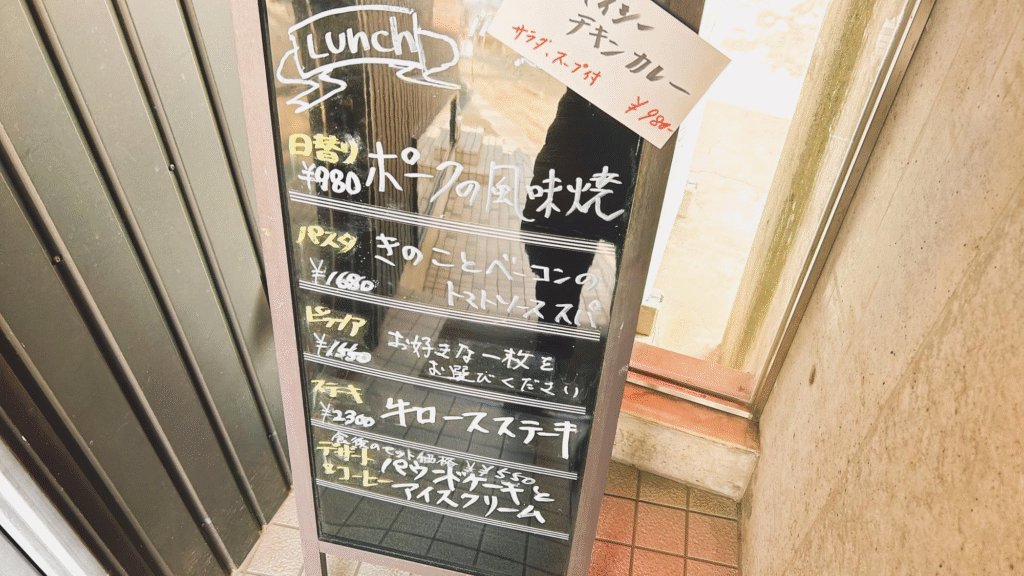 Lunch
イシー
チキンカレー
サラダ、スープ付
¥980-
日替り
¥980
ポークの風味焼
パスタ
¥1680
きのことベーコンの
トマトソーススパ
ピッツア
お好きな一枚を
お選びください
ステーキ
¥2300
牛ロースステーキ
食後のセット価格 ¥550
デザート
コーヒー
パウンドケーキと
アイスクリーム